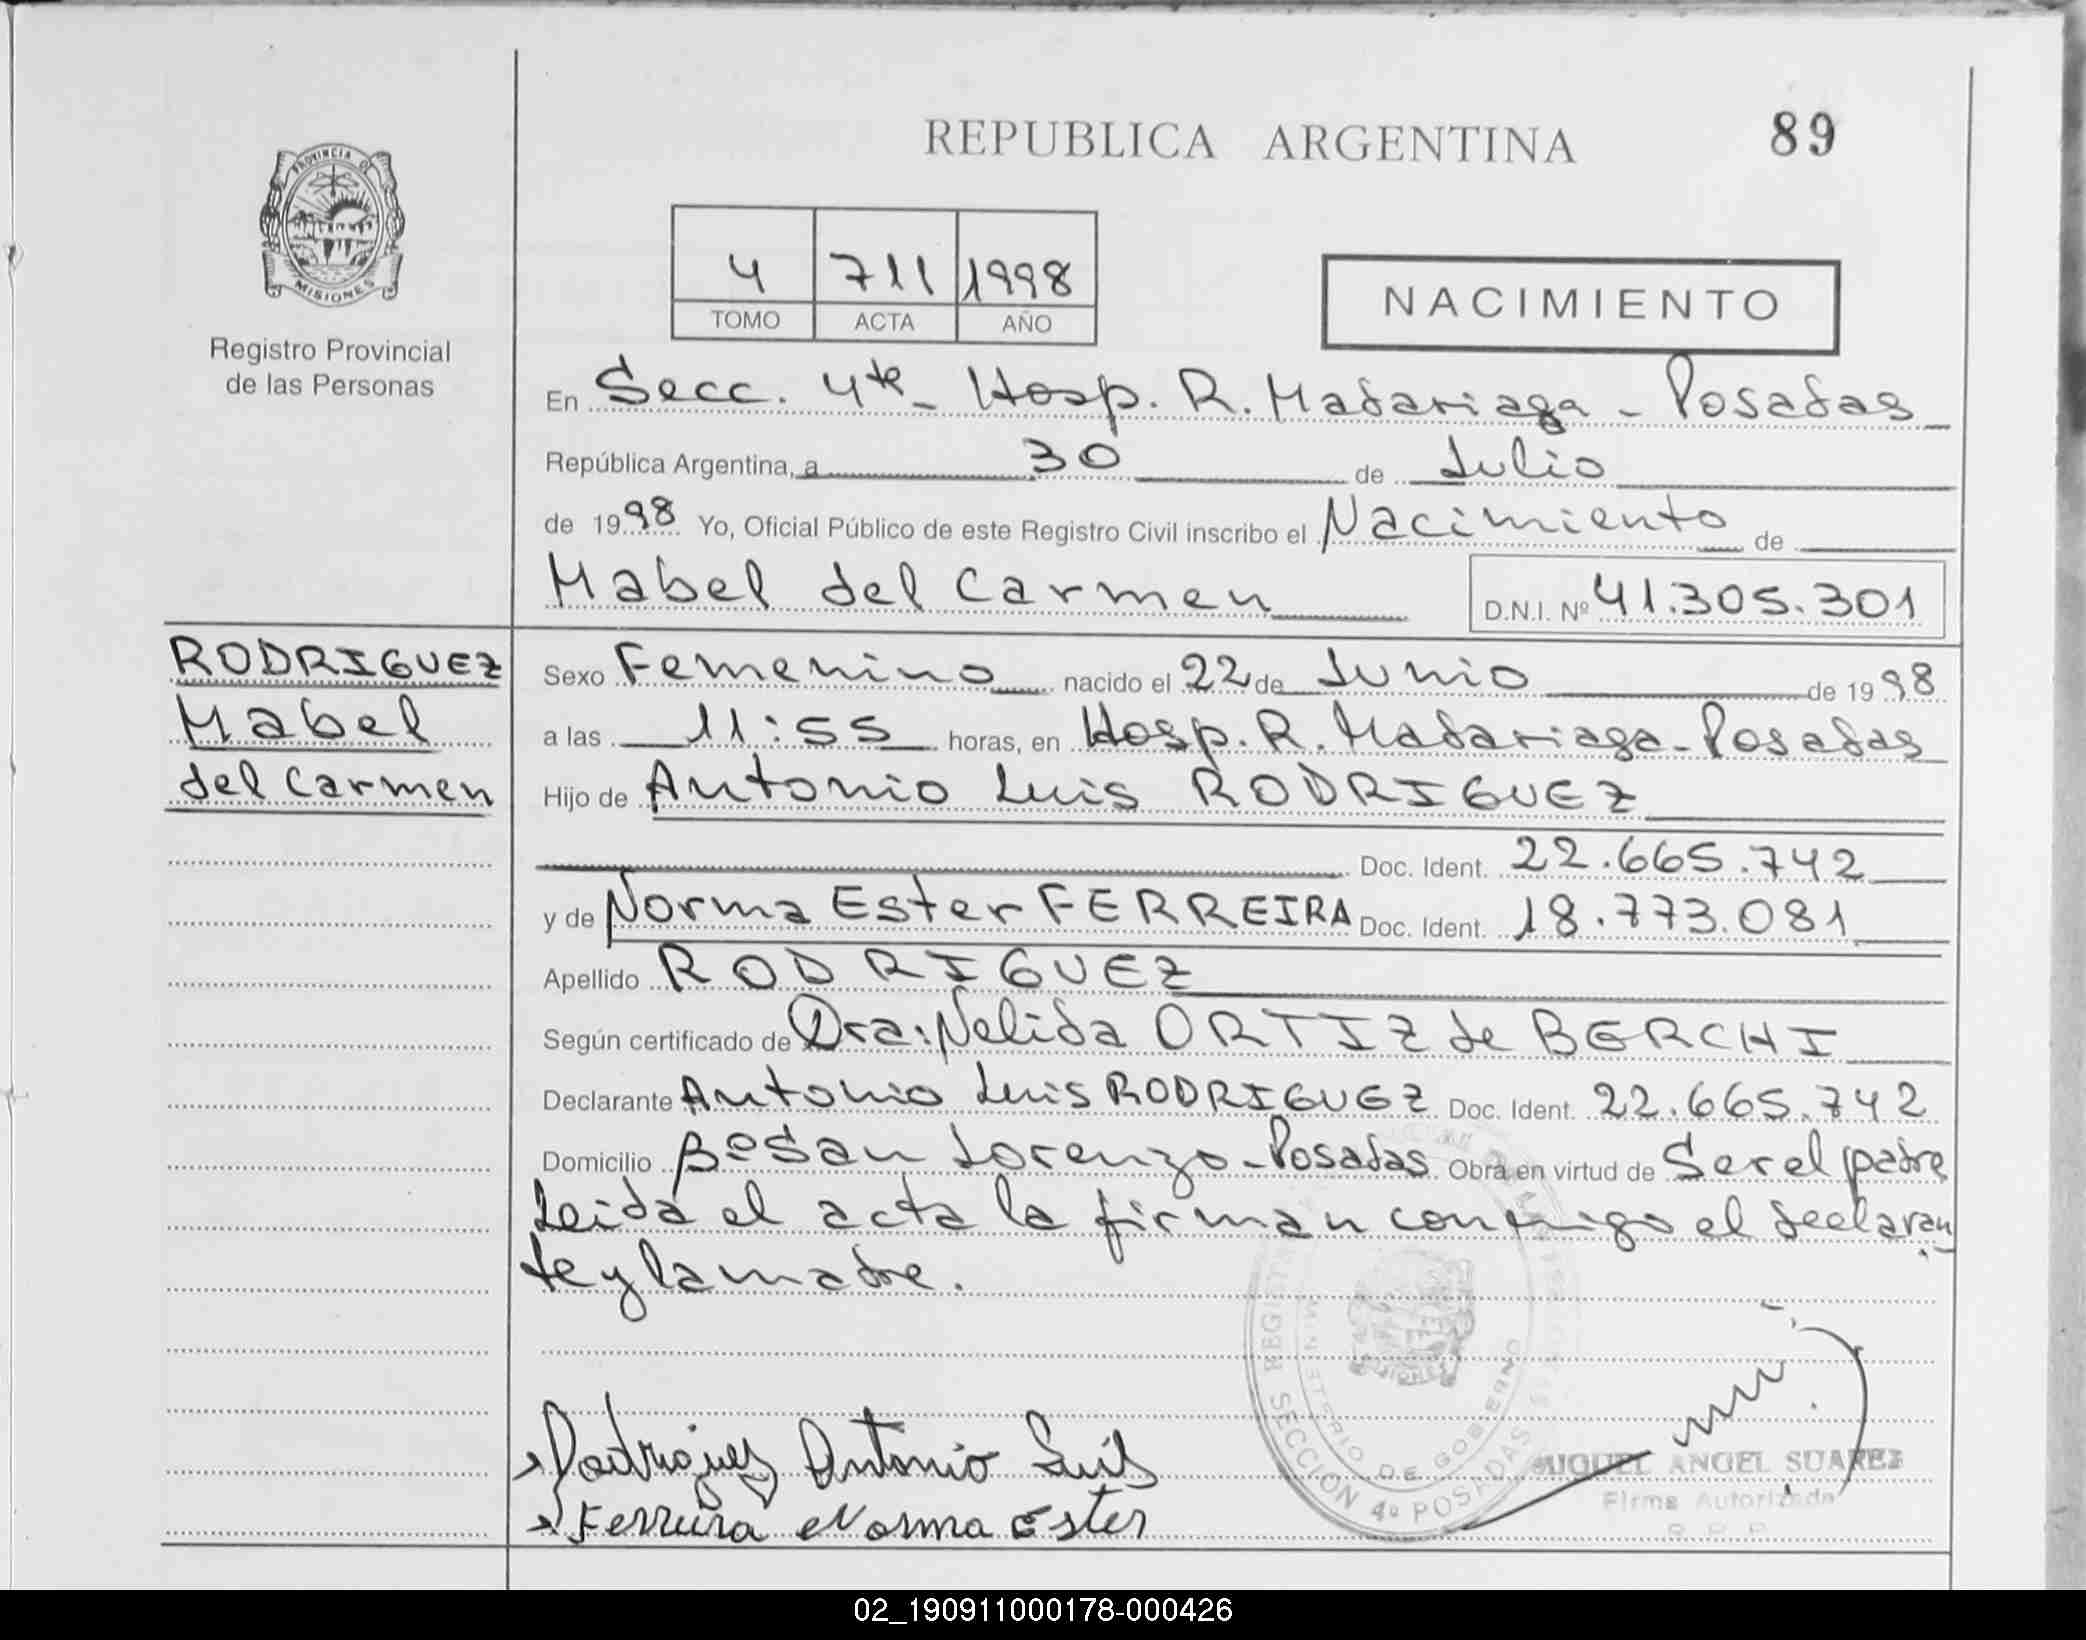 REPUBLICA ARGENTINA
89
PROVINCIA DE
MISIONES
Registro Provincial
de las Personas
4 711 1998
TOMO ACTA AÑO
NACIMIENTO
En Secc. 4ta - Hosp. R. Madariaga - Posadas
República Argentina, a 30 de Julio
de 1998 Yo, Oficial Público de este Registro Civil inscribo el Nacimiento de
Mabel del Carmen D.N.I. Nº 41.305.301
RODRIGUEZ
Mabel
del Carmen
Sexo Femenino nacido el 22 de Junio de 1998
a las 11:55 horas, en Hosp. R. Madariaga - Posadas
Hijo de Antonio Luis RODRIGUEZ
Doc. Ident. 22.665.742
y de Norma Ester FERREIRA Doc. Ident. 18.773.081
Apellido RODRIGUEZ
Según certificado de Dra: Nelida ORTIZ de BERCHI
Declarante Antonio Luis RODRIGUEZ Doc. Ident. 22.665.742
Domicilio Bº San Lorenzo - Posadas Obra en virtud de Ser el padre
Leida el acta la firman conmigo el declaran
te y la madre.
MINISTERIO DE GOBIERNO
SECCION 4º POSADAS
Rodriguez Antonio Luis
Ferreira Norma Ester
MIGUEL ANGEL SUAREZ
Firma Autorizada
02_190911000178-000426